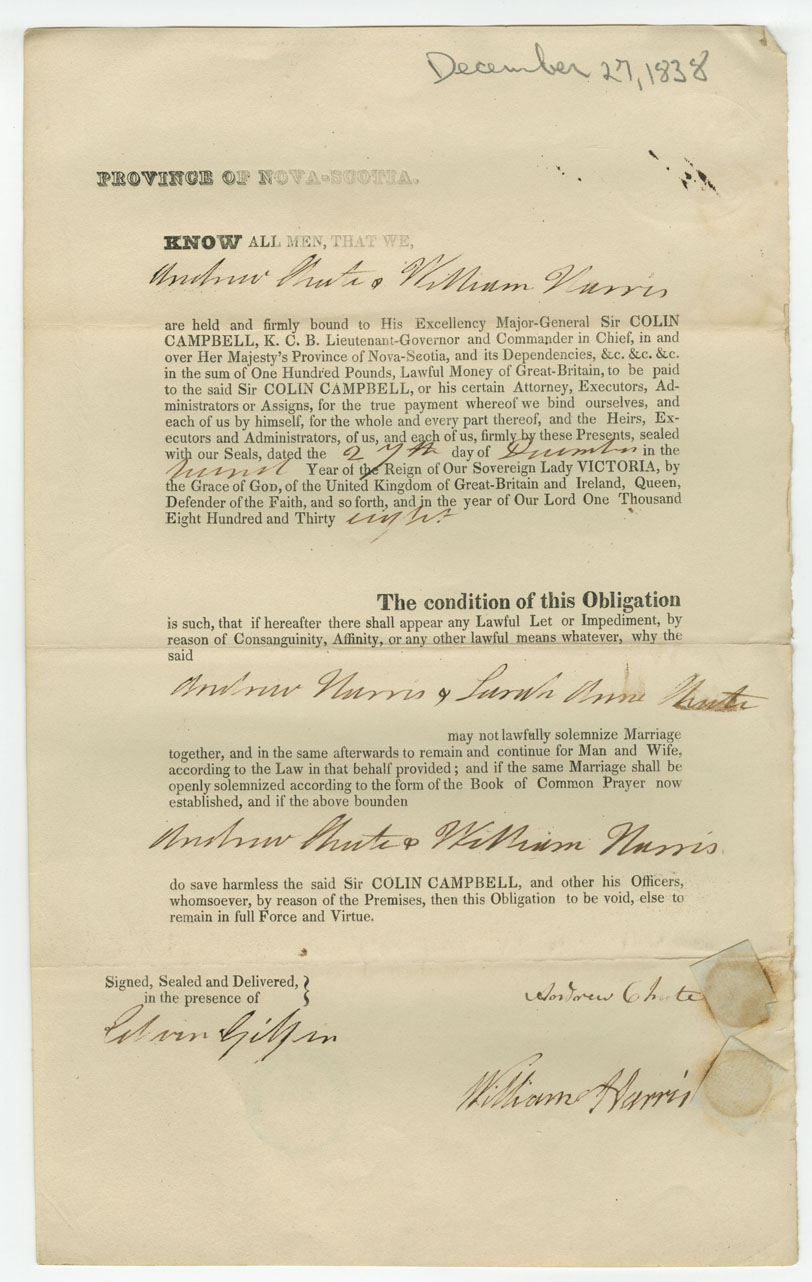 December 27, 1838
PROVINCE OF NOVA-SCOTIA.
KNOW ALL MEN, THAT WE,
Andrew Chute & William Harris
are held and firmly bound to His Excellency Major-General Sir COLIN
CAMPBELL, K. C. B. Lieutenant-Governor and Commander in Chief, in and
over Her Majesty's Province of Nova-Scotia, and its Dependencies, &c. &c. &c.
in the sum of One Hundred Pounds, Lawful Money of Great-Britain, to be paid
to the said Sir COLIN CAMPBELL, or his certain Attorney, Executors, Ad-
ministrators or Assigns, for the true payment whereof we bind ourselves, and
each of us by himself, for the whole and every part thereof, and the Heirs, Ex-
ecutors and Administrators, of us, and each of us, firmly by these Presents, sealed
with our Seals, dated the 27th day of December in the
Year of the Reign of Our Sovereign Lady VICTORIA, by
the Grace of GOD, of the United Kingdom of Great-Britain and Ireland, Queen,
Defender of the Faith, and so forth, and in the year of Our Lord One Thousand
Eight Hundred and Thirty eight
The condition of this Obligation
is such, that if hereafter there shall appear any Lawful Let or Impediment, by
reason of Consanguinity, Affinity, or any other lawful means whatever, why the
said
Andrew Harris & Sarah Anne Chute
may not lawfully solemnize Marriage
together, and in the same afterwards to remain and continue for Man and Wife,
according to the Law in that behalf provided; and if the same Marriage shall be
openly solemnized according to the form of the Book of Common Prayer now
established, and if the above bounden
Andrew Chute & William Harris
do save harmless the said Sir COLIN CAMPBELL, and other his Officers,
whomsoever, by reason of the Premises, then this Obligation to be void, else to
remain in full Force and Virtue.
Signed, Sealed and Delivered,
in the presence of
Andrew Chute
Edwin Gilpin
William Harris